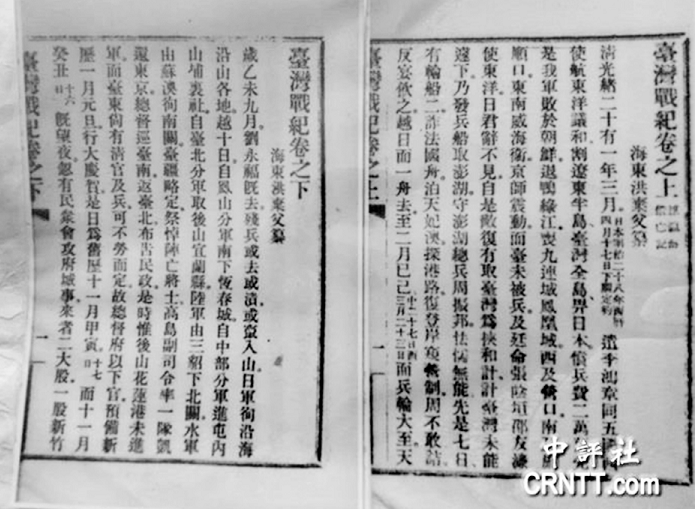 臺灣戰紀卷之上
海東洪棄父纂
清光緒二十有一年三月日本明治二十八年西曆四月十七日下關定約遣李鴻章同五國
使航東洋議和割遼東半島臺灣全島畀日本償兵費二萬萬先
是我軍敗於朝鮮退鴨綠江喪九連城鳳凰城西及營口南
順口東南威海衛京師震動而臺未被兵及廷命張陰垣邵友濂
使東洋日君辭不見自是敵復有取臺灣為挾和計計臺灣未能
遽下乃發兵船取澎湖守澎湖總兵周振邦怯懦無能先是七日
有輪船二詐法國舟泊天妃澳探港路復登岸窺營制周不敢詰
反宴飲之越日而一舟去至二月己巳二十七日西三月二十三日而兵輪大至天
臺灣戰紀卷之上
一
臺灣戰紀卷之下
海東洪棄父纂
歲乙未九月劉永福既去殘兵或去或潰或竄入山日軍徇沿海
沿山各地越十日自鳳山分軍南下恆春城自中部分軍進屯內
山埔裏社自臺北分軍取後山宜蘭縣陸軍由三貂下北關水軍
由蘇澳徇南關臺疆略定祭悼陣亡將士高島副司令率一隊凱
還東京總督巡臺南返臺北布告民政是時惟後山花蓮港未進
軍而臺東尚有清官及兵可不勞而定故總督府以下官預備新
歷一月元旦行大慶賀是日為舊歷十一月甲寅十七日而十一月
癸丑十六日既望夜忽有民眾會攻府城事來者二大股一股新竹
臺灣戰紀卷之下
一
中評社
CRNTT.com